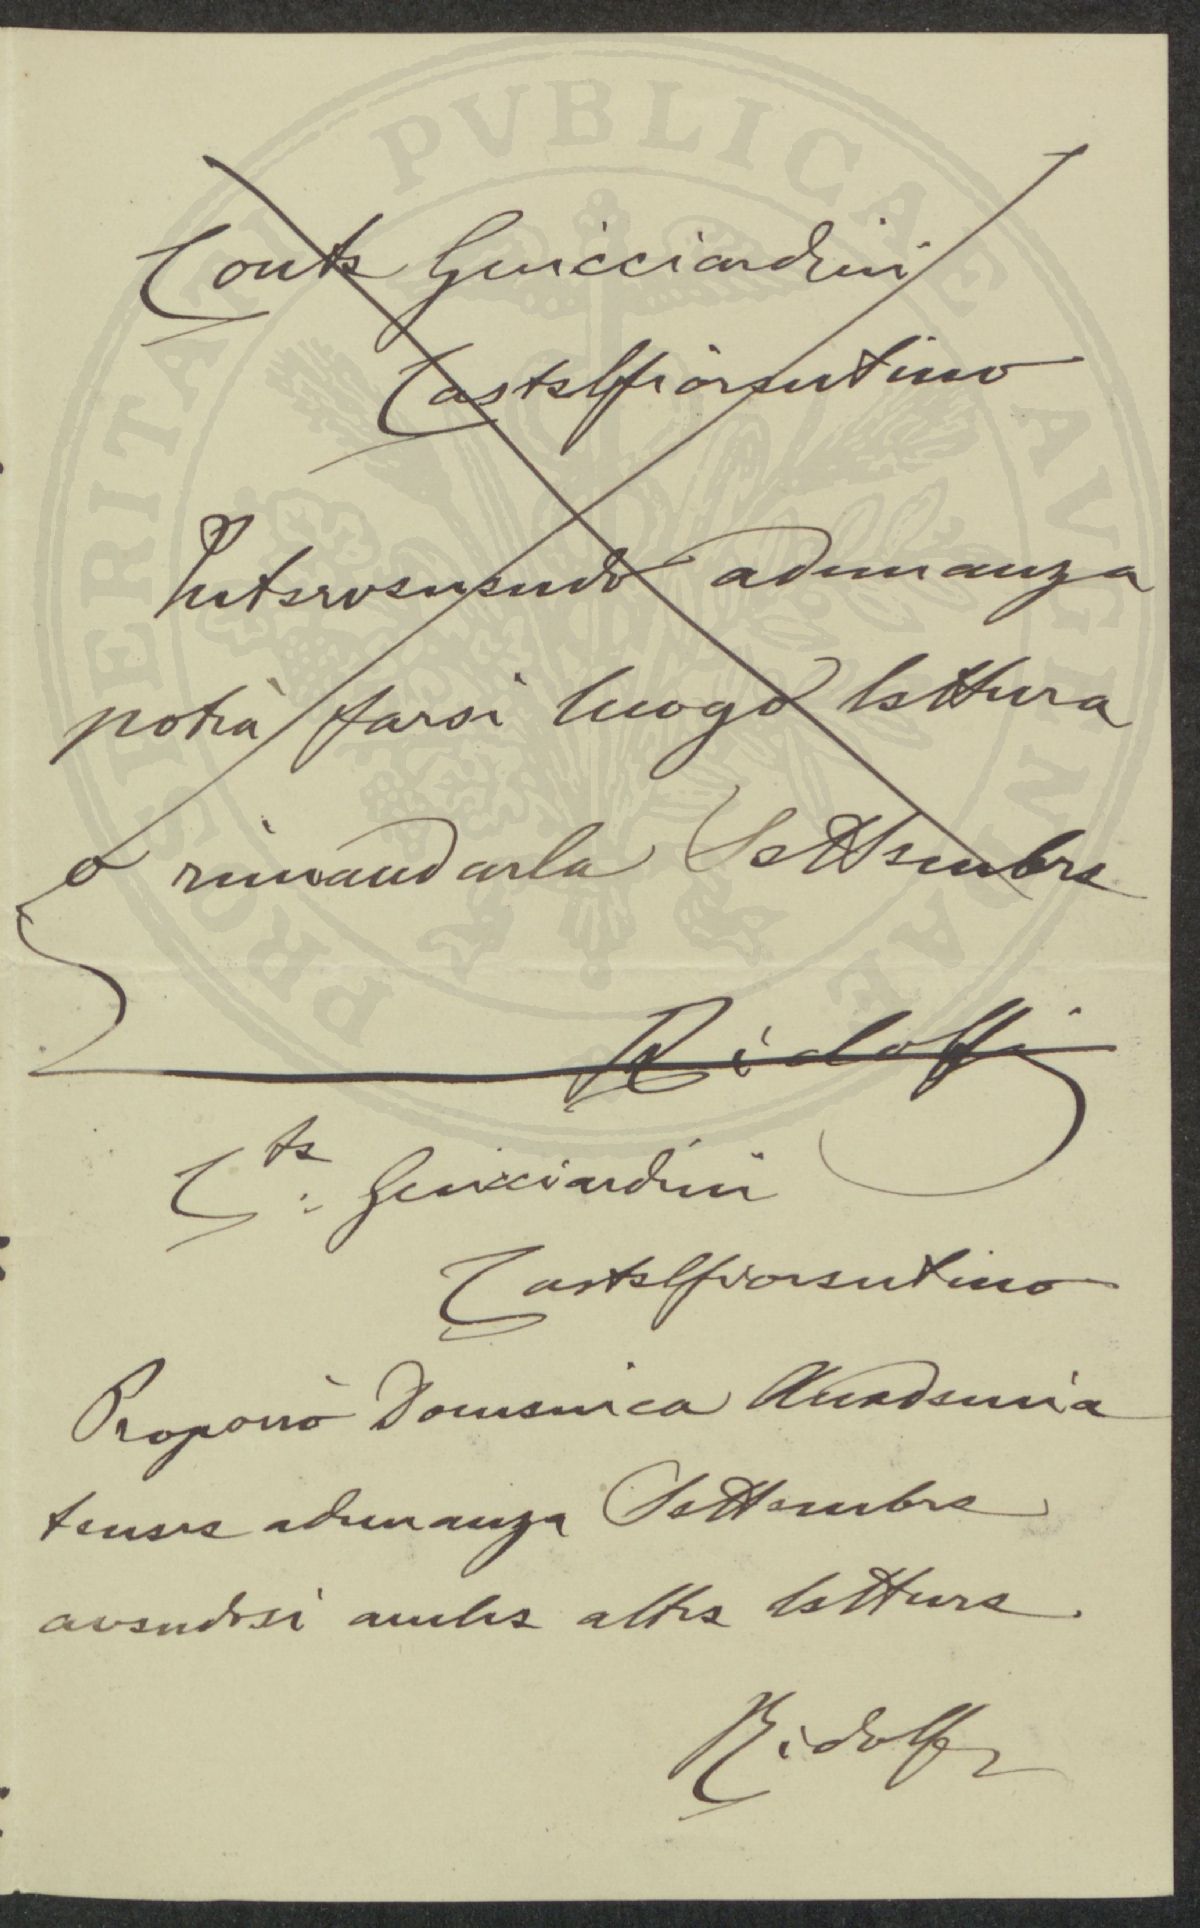 PROSPERITATI PVBLICAE AVGENDAE
Conte Guicciardini
Castelfiorentino
Intervenendo adunanza
potrà farsi luogo lettura
o rimandarla Settembre
Ridolfi
Cte. Guicciardini
Castelfiorentino
Proporrò Domenica Accademia
tenere adunanza Settembre
avendosi anche altre letture.
Ridolfi